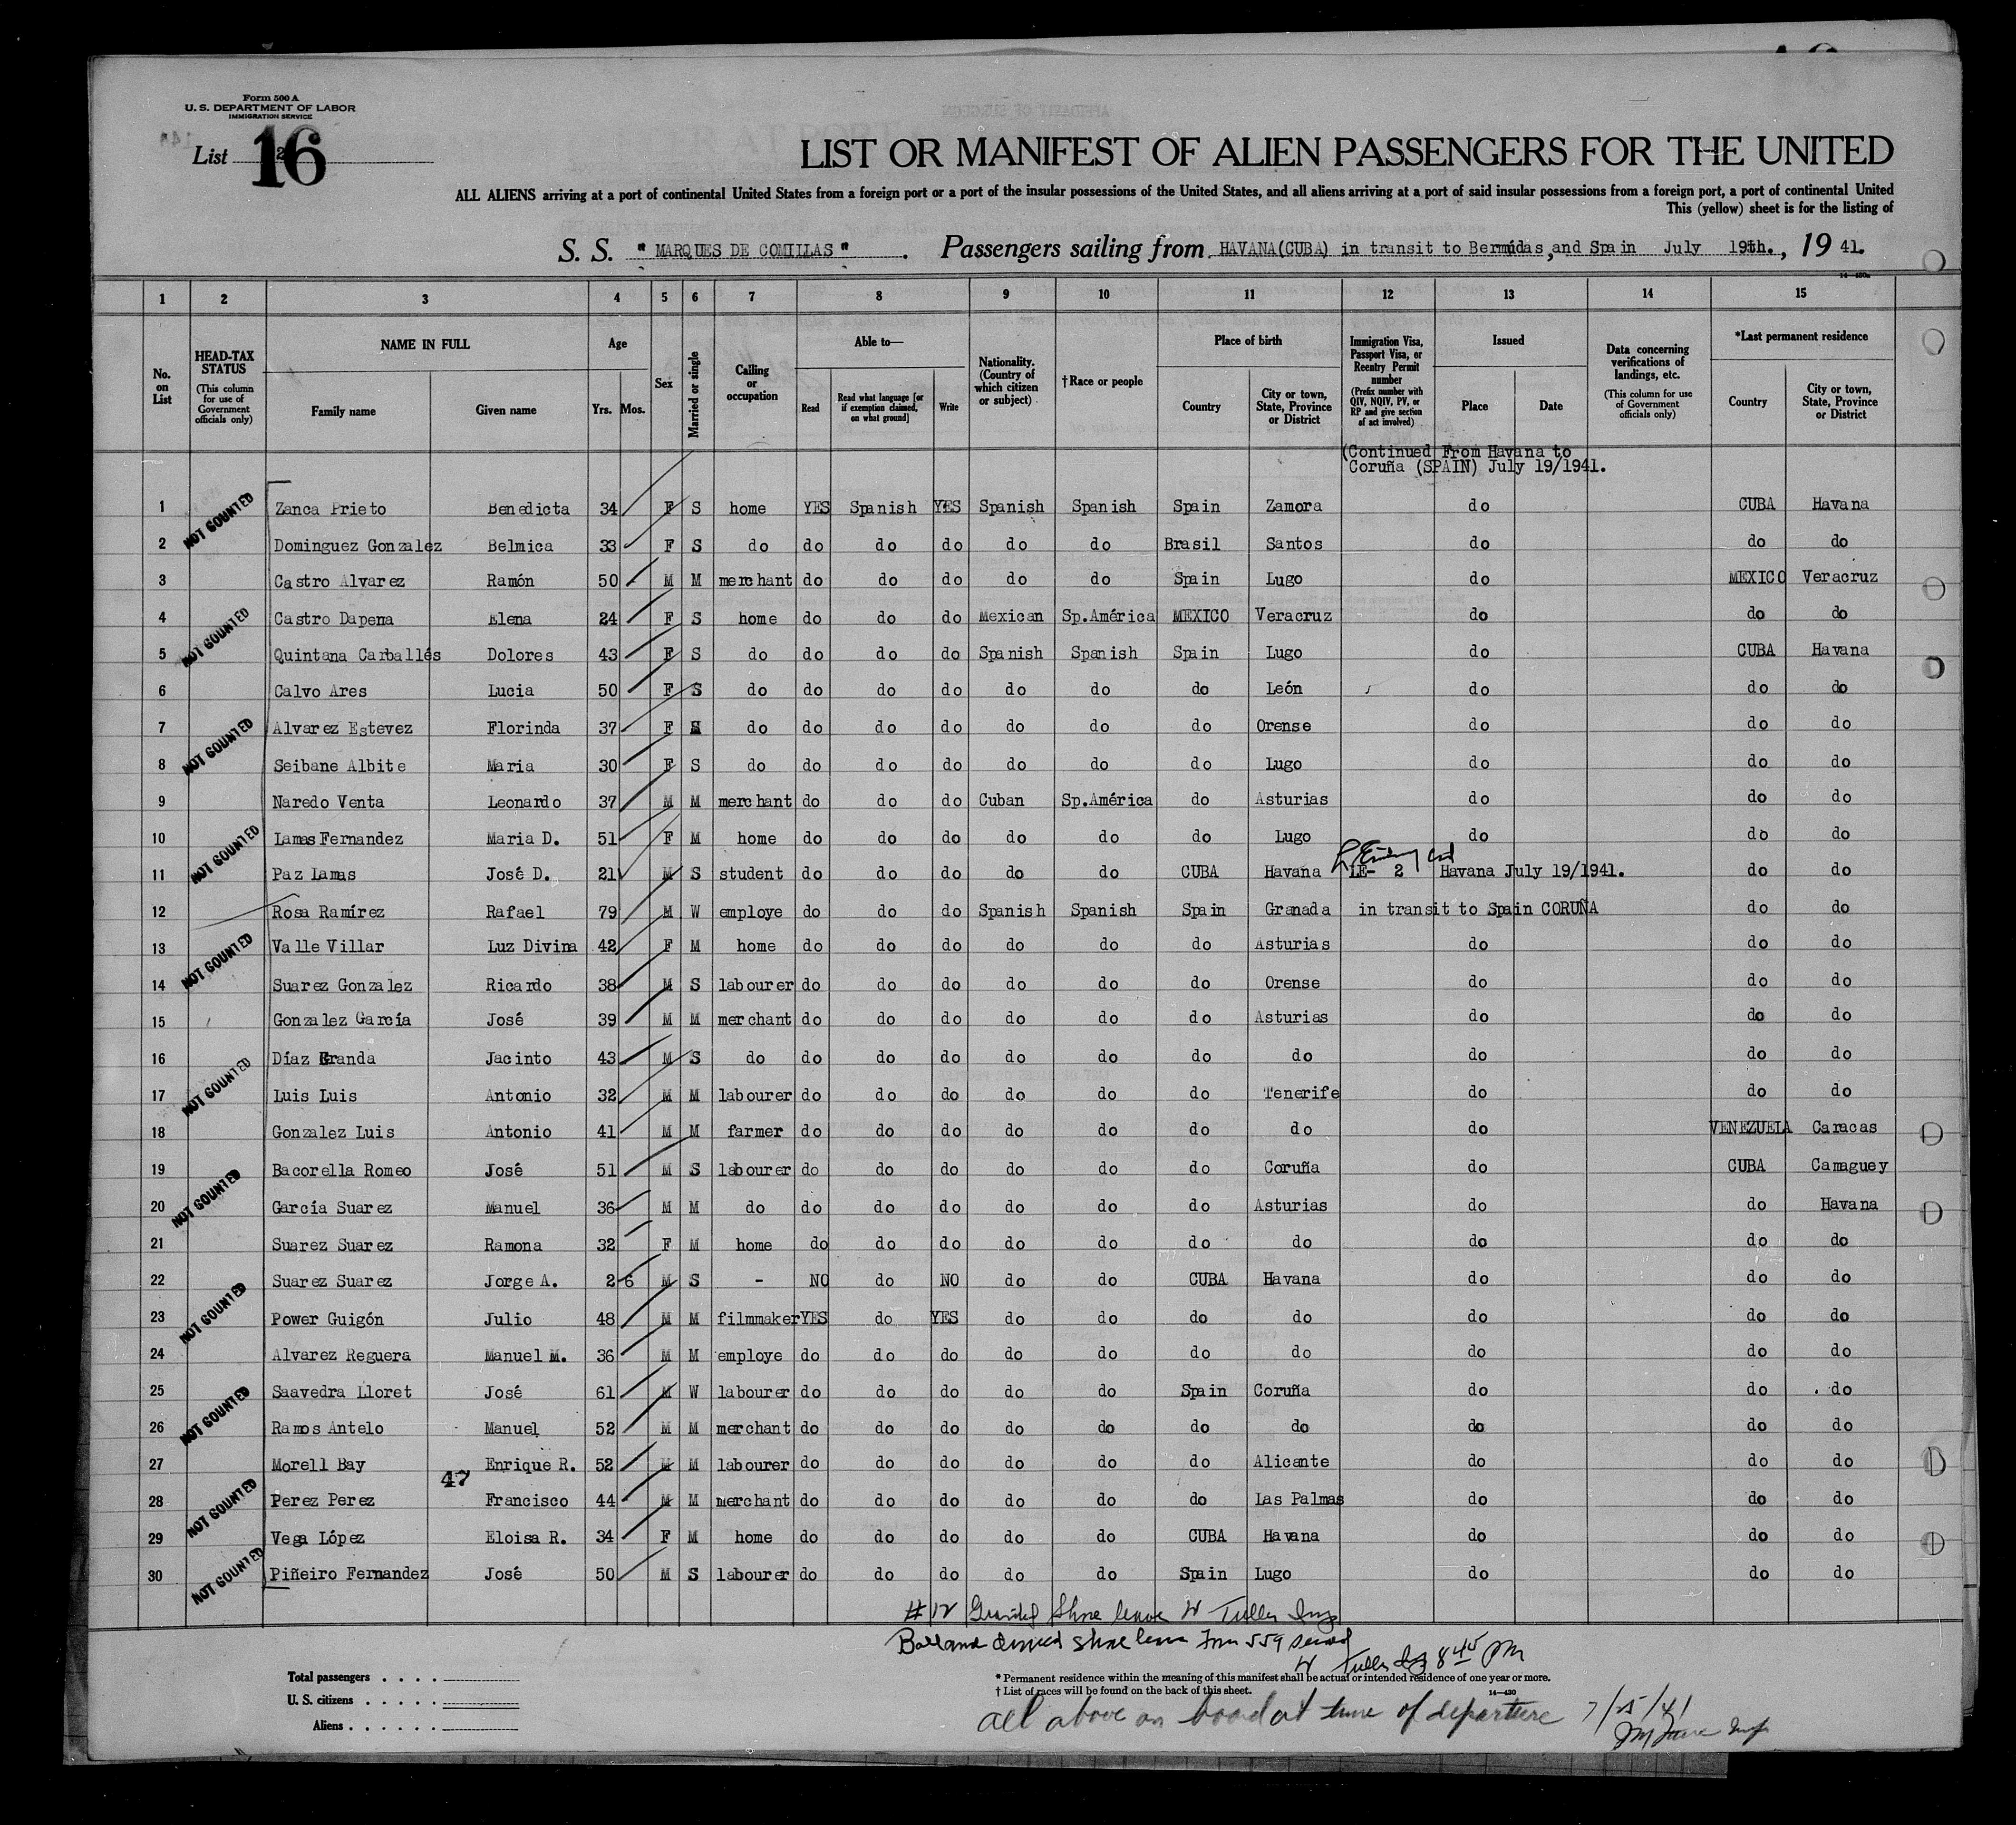 Form 500 A
U. S. DEPARTMENT OF LABOR
IMMIGRATION SERVICE
List 16
LIST OR MANIFEST OF ALIEN PASSENGERS FOR THE UNITED
ALL ALIENS arriving at a port of continental United States from a foreign port or a port of the insular possessions of the United States, and all aliens arriving at a port of said insular possessions from a foreign port, a port of continental United
This (yellow) sheet is for the listing of
S. S. " MARQUES DE COMILLAS " . Passengers sailing from HAVANA(CUBA) in transit to Bermudas,and Spain July 19th., 19 41.
1 2 3 4 5 6 7 8 9 10 11 12 13 14 15
No. on List
HEAD-TAX STATUS (This column for use of Government officials only)
NAME IN FULL Family name Given name
Age Yrs. Mos.
Sex
Married or single
Calling or occupation
Able to— Read Read what language [or if exemption claimed, on what ground] Write
Nationality. (Country of which citizen or subject)
† Race or people
Place of birth Country City or town, State, Province or District
Immigration Visa, Passport Visa, or Reentry Permit number (Prefix number with QIV, NQIV, PV, or RP and give section of act involved)
Issued Place Date
Data concerning verifications of landings, etc. (This column for use of Government officials only)
*Last permanent residence Country City or town, State, Province or District
(Continued From Havana to
Coruña (SPAIN) July 19/1941.
1 NOT COUNTED Zanca Prieto Benedicta 34 F S home YES Spanish YES Spanish Spanish Spain Zamora do CUBA Havana
2 Dominguez Gonzalez Belmica 33 F S do do do do do do Brasil Santos do do do
3 Castro Alvarez Ramón 50 M M merchant do do do do do Spain Lugo do MEXICO Veracruz
4 NOT COUNTED Castro Dapena Elena 24 F S home do do do Mexican Sp.América MEXICO Veracruz do do do
5 Quintana Carballés Dolores 43 F S do do do do Spanish Spanish Spain Lugo do CUBA Havana
6 Calvo Ares Lucia 50 F S do do do do do do do León do do do
7 NOT COUNTED Alvarez Estevez Florinda 37 F S do do do do do do do Orense do do do
8 Seibane Albite Maria 30 F S do do do do do do do Lugo do do do
9 Naredo Venta Leonardo 37 M M merchant do do do Cuban Sp.América do Asturias do do do
10 NOT COUNTED Lamas Fernandez Maria D. 51 F M home do do do do do do Lugo do do do
11 Paz Lamas José D. 21 M S student do do do do do CUBA Havana LE- 2 Havana July 19/1941. do do
12 Rosa Ramírez Rafael 79 M W employe do do do Spanish Spanish Spain Granada in transit to Spain CORUÑA do do
13 NOT COUNTED Valle Villar Luz Divina 42 F M home do do do do do do Asturias do do do
14 Suarez Gonzalez Ricardo 38 M S labourer do do do do do do Orense do do do
15 Gonzalez García José 39 M M merchant do do do do do do Asturias do do do
16 Díaz Granda Jacinto 43 M S do do do do do do do do do do do
17 NOT COUNTED Luis Luis Antonio 32 M M labourer do do do do do do Tenerife do do do
18 Gonzalez Luis Antonio 41 M M farmer do do do do do do do do VENEZUELA Caracas
19 Bacorella Romeo José 51 M S labourer do do do do do do Coruña do CUBA Camaguey
20 NOT COUNTED García Suarez Manuel 36 M M do do do do do do do Asturias do do Havana
21 Suarez Suarez Ramona 32 F M home do do do do do do do do do do
22 Suarez Suarez Jorge A. 2 6 M S - NO do NO do do CUBA Havana do do do
23 NOT COUNTED Power Guigón Julio 48 M M filmmaker YES do YES do do do do do do do
24 Alvarez Reguera Manuel M. 36 M M employe do do do do do do do do do do
25 NOT COUNTED Saavedra Lloret José 61 M W labourer do do do do do Spain Coruña do do do
26 Ramos Antelo Manuel 52 M M merchant do do do do do do do do do do
27 Morell Bay Enrique R. 52 M M labourer do do do do do do Alicante do do do
47
28 NOT COUNTED Perez Perez Francisco 44 M M merchant do do do do do do Las Palmas do do do
29 Vega López Eloisa R. 34 F M home do do do do do CUBA Havana do do do
30 NOT COUNTED Piñeiro Fernandez José 50 M S labourer do do do do do Spain Lugo do do do
#12 Granted Shore leave W Tuller Insp
shore leave 559
W Tuller Insp 8 45 PM
Total passengers . . . .
U. S. citizens . . . . .
Aliens . . . . . .
* Permanent residence within the meaning of this manifest shall be actual or intended residence of one year or more.
† List of races will be found on the back of this sheet.
14—430
all above on board at time of departure 7/25/41
Insp